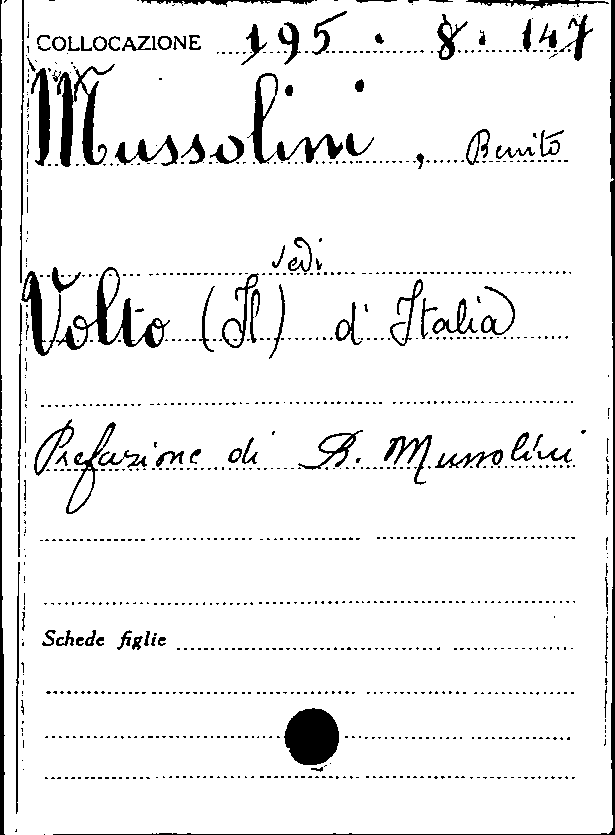 COLLOCAZIONE 195. 8. 147
Mussolini, Benito
vedi
Volto (Il) d'Italia
Prefazione di B. Mussolini
Schede figlie